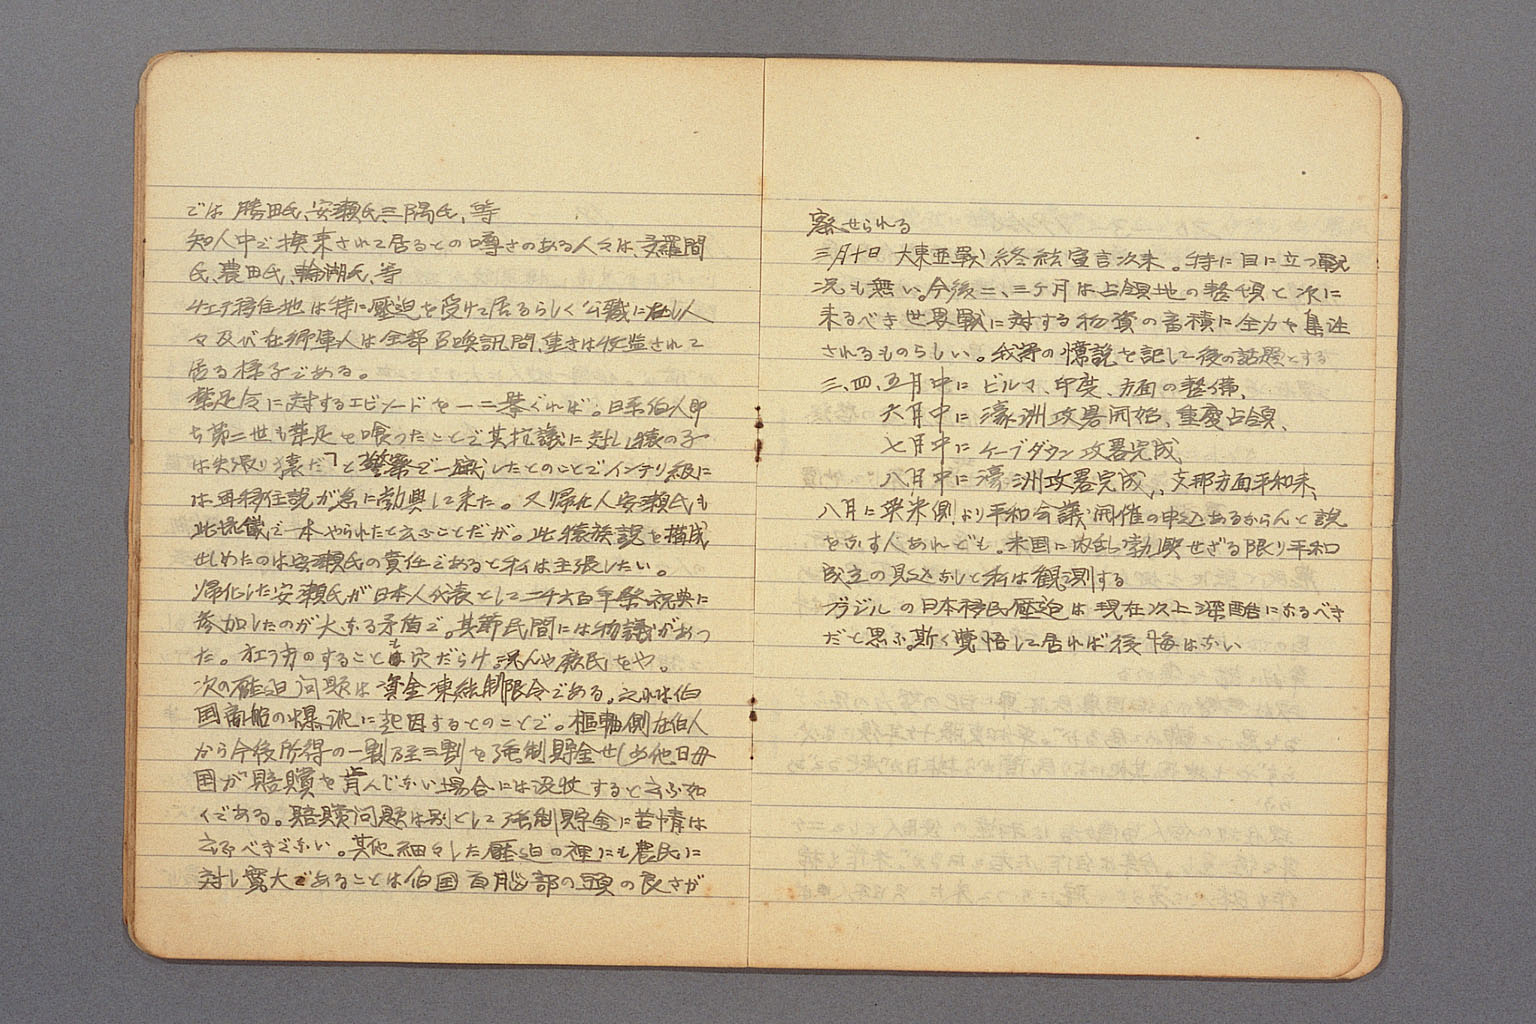 では 勝田氏、安瀬氏、三隅氏、等
知人中で換束されて居るとの噂さのある人々は、多羅間
氏、農田氏、輪湖氏、等
チエテ移住地は特に壓迫を受けて居るらしく公職に在りし人
々及び在郷軍人は全部召喚訊問、重きは收監されて
居る様子である。
禁足令に対するエピソードを一二挙ぐれば。日系伯人即
ち第二世も禁足を喰ったことで其抗議に対し猿の子
は矢張り猿だ」と警察で一蹴したとのことでインテリ級に
は再移住説が急に勃興して来た。又帰化人安瀬氏も
此流儀で一本やられたと云ふことだが。此猿族説を構成
せしめたのは安瀬氏の責任であると私は主張したい。
帰化した安瀬氏が日本人代表として二千六百年祭祝典に
参加したのが大なる矛盾で。其節民間には物議があっ
た。エラ方のすることも穴だらけ況んや庶民をや。
次の壓迫问题は資金凍結制限令である。之れは伯
国商船の爆沈に起因するとのことで。樞軸側在伯人
から今後所得の一割乃至三割を強制貯金せしめ他日母
国が賠贖を肯んじない場合には没收すると云ふ如
くである。賠贖问题は別として強制貯金に苦情は
云ふべきでない。其他細々した壓迫の裡にも農民に
対し寛大であることは伯国首脳部の頭の良さが
察せられる
三月十日 大東亜戰終結宣言次来。特に目に立つ戰
况も無い。今後二、三ケ月は占領地の整頓と次に
来るべき世界戰に対する物資の蓄積に全力を集注
されるものらしい。我将の憶説を記して後の話題とする
三、四、五月中に ビルマ、印度、方面の整備、
六月中に 濠洲攻畧開始、重慶占領、
七月中に ケープダウン攻畧完成
八月中に 濠洲攻畧完成、支那方面平和来、
八月に英米側より平和会議開催の申込あるならんと説
をなす人あれども。米国に内乱勃興せざる限り平和
成立の見込なしと私は観測する
ブラジルの日本移民壓迫は現在次上深酷になるべき
だと思ふ。斯く覚悟して居れば後悔はない